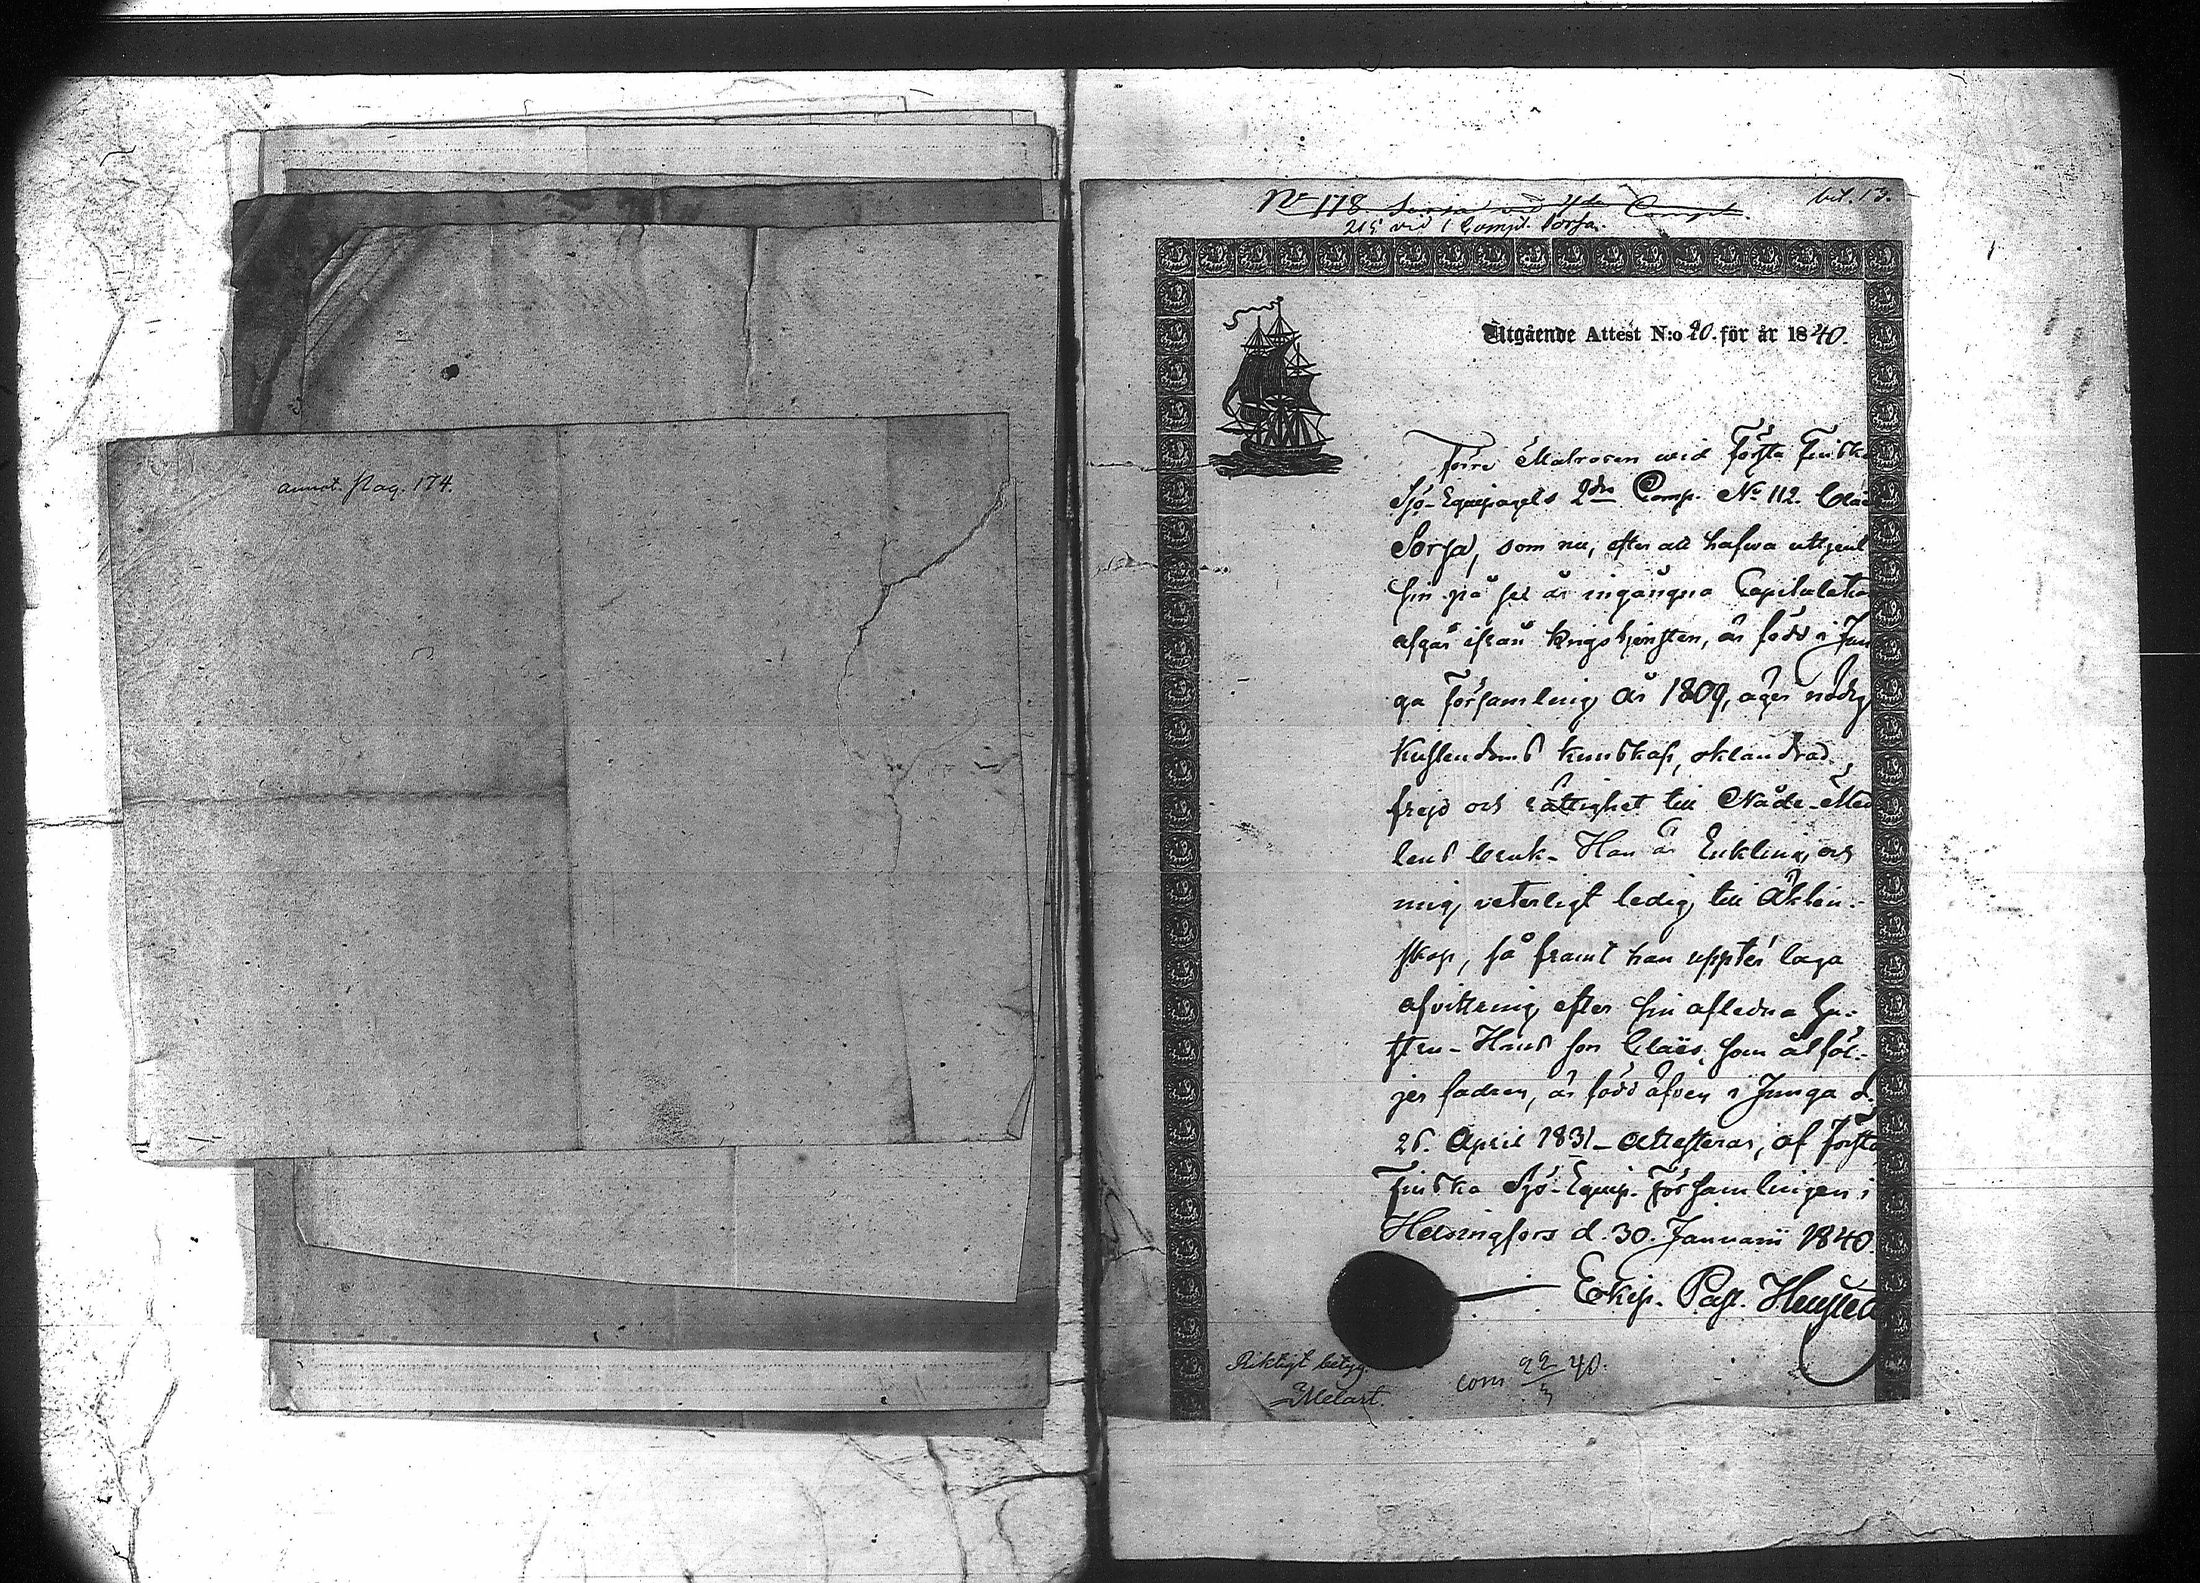 annot. pag. 174.
No 178 Sorsa vid 4de Comp.
bil. 13.
215 vid 1 Comp. Sorsa.
Utgående Attest N:o 20. för år 1840.
Förre Matrosen wid Första Finska
Sjö-Equipagets 2dra Comp. No 112. Claës
Sorsa, som nu, efter att hafwa uttjent
sin på sex år ingångna Capitulation
afgår ifrån krigstjensten, är född i Jun
ga Församling år 1809, äger nödig
Kristendoms kunskap, oklandrad
frejd och rättighet till Nåde-Med
lens bruk. Han är Enkling, och
mig veterligt ledig till Äkten-
skap, så framt han uppter laga
afvittring efter sin aflidna Hu-
stru. Hans son Claës, som åtföl-
jer fadren, är född äfven i Junga d.
26. April 1831. attesteras, af Första
Finska Sjö-Equip. Församlingen i
Helsingfors d. 30. Januarii 1840.
Ekip. Past.
Riktigt betyg
Melart.
com 22/3 40.